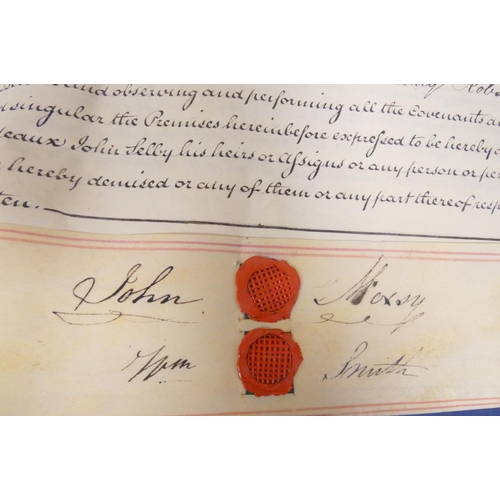 and observing and performing all the Covenant
singular the Premises hereinbefore expressed to be hereby
John Selby his heirs or assigns or any person or
hereby demised or any of them or any part thereof
John Moxsy
Wm Smith